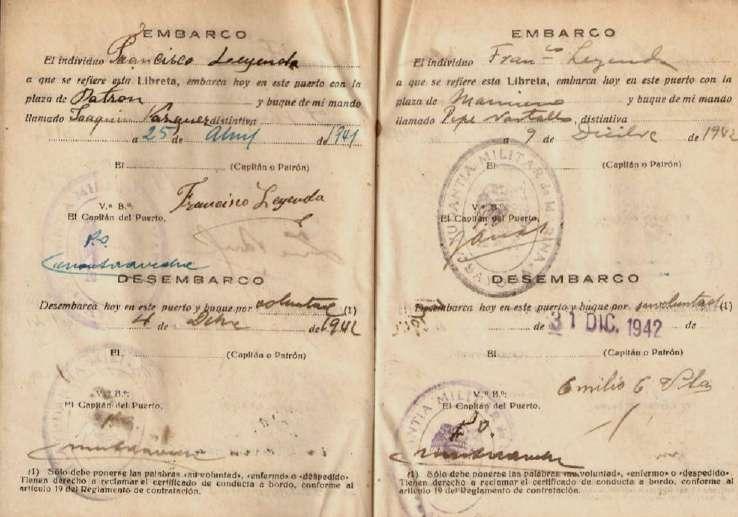 EMBARCO
El individuo Francisco Leyenda
a que se refiere esta Libreta, embarca hoy en este puerto con la
plaza de Patron y buque de mi mando
llamado Joaquin Vazquez distintiva
a 25 de Abril de 1941
El (Capitán o Patrón)
Francisco Leyenda
V.º B.º
El Capitán del Puerto,
P.O.
DESEMBARCO
Desembarca hoy en este puerto y buque por voluntad (1)
4 Dbre de 1942
El (Capitán o Patrón)
V.º B.º:
El Capitán del Puerto,
(1) Sólo debe ponerse las palabras «su voluntad», «enfermo» o «despedido».
Tienen derecho a reclamar el certificado de conducta a bordo, conforme al
artículo 19 del Reglamento de contratación.
EMBARCO
El individuo Fran.co Leyenda
a que se refiere esta Libreta, embarca hoy en este puerto con la
plaza de Marinero y buque de mi mando
llamado Pepe distintiva
a 9 de de 1942
El (Capitán o Patrón)
AYUDANTIA MILITAR de la MARINA
V.º B.º
El Capitán del Puerto,
DESEMBARCO
Desembarca hoy en este puerto y buque por su voluntad (1)
de 31 DIC. 1942 de
El (Capitán o Patrón)
Emilio
V.º B.º:
El Capitán del Puerto,
(1) Sólo debe ponerse las palabras «su voluntad», «enfermo» o «despedido».
Tienen derecho a reclamar el certificado de conducta a bordo, conforme al
artículo 19 del Reglamento de contratación.